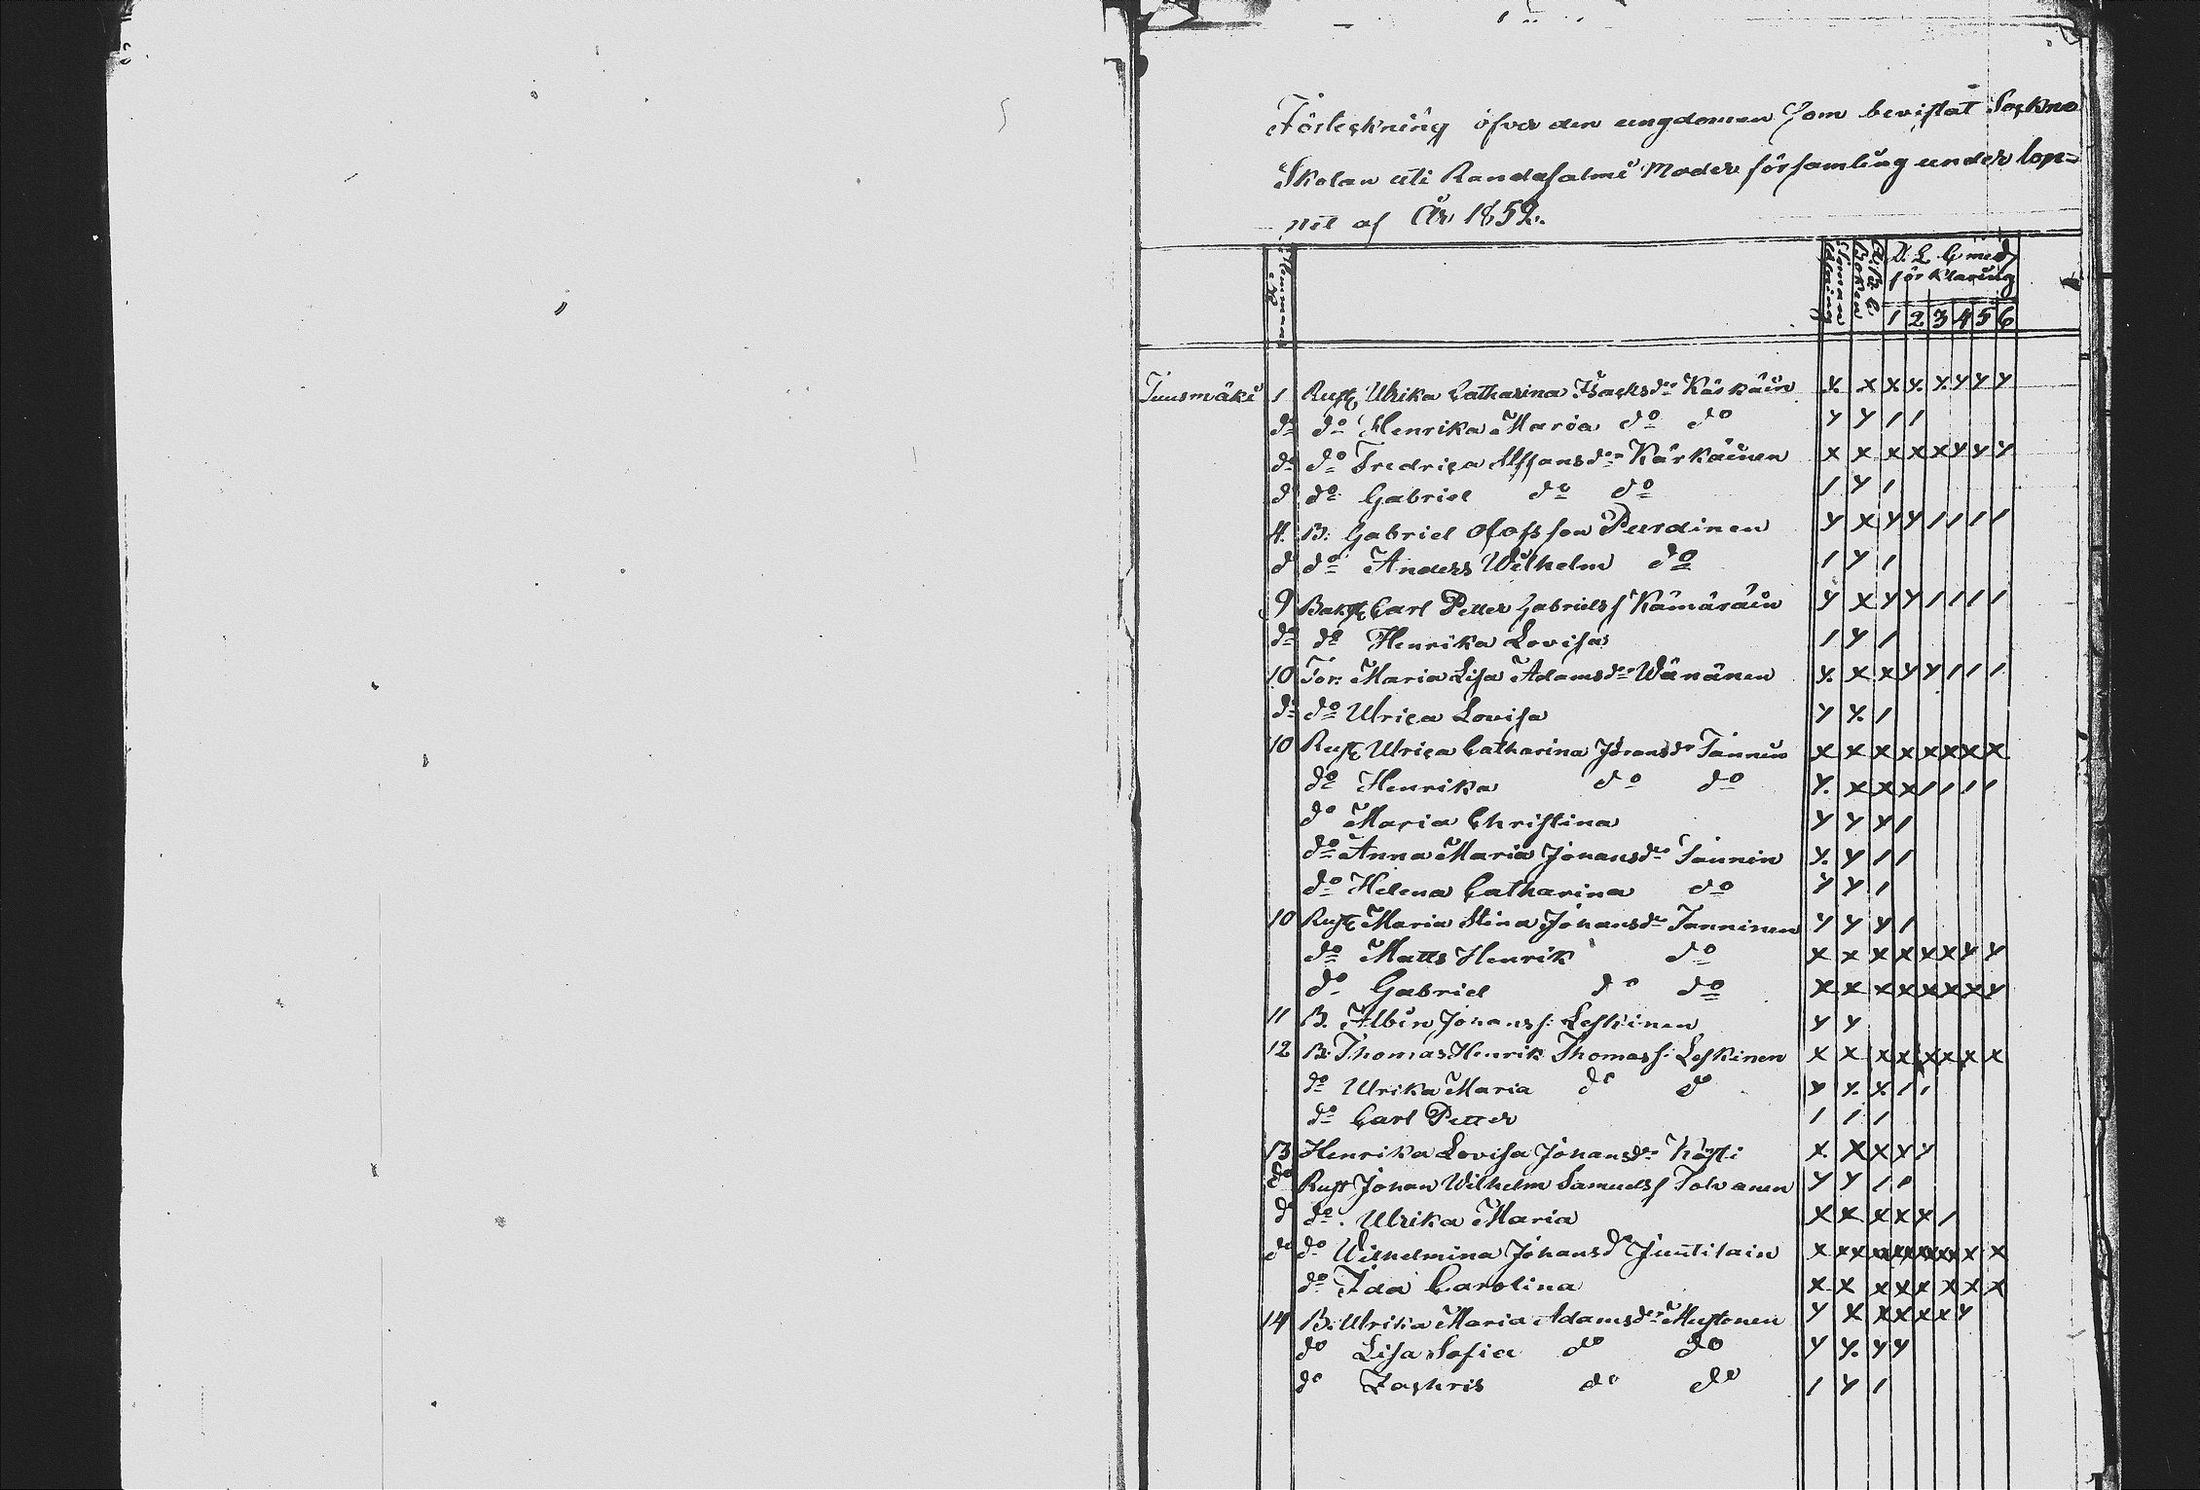 Förteckning öfver den ungdomen som bevistat Sockne
Skolan uti Randasalmi Moder församling under lop=
pet af År 1852.
Hemmans No
D: L. C med
för klaring
1 2 3 4 5 6
Tuusmäki 1 Rust Ulrika Catharina Isacksdr Käskäin Y. X X Y. Y. Y Y Y
do do Henrika Maria do do Y Y / /
do do Fredrica Staffansdr Kärkäinen X X X X X Y Y Y
do do Gabriel do do / Y /
4. B: Gabriel Olofsson Purdinen Y X Y Y / / / /
d do Anders Wilhelm do / Y /
9 Carl Petter Gabrielss Kämäräin Y X Y Y / / / /
do do Henrika Lovisa / Y /
10 Tor: Maria Lisa Adamsdr Wänänen Y. X X Y Y / / /
do do Ulrica Lovisa Y Y. /
10 Rust Ulrica Catharina Johansdr Tannin X X X X X X X X
do Henrika do do Y. X X X / / / /
do Maria Christina Y Y Y /
do Anna Maria Johansdr Tannin Y. Y / /
do Helena Catharina do Y Y /
10 Rust Maria Stina Johansdr Tanninen Y Y Y /
do Matts Henrik do X X X X X X Y Y
do Gabriel do do X X X X X X X Y
11 B. Albin Johanss: Leskinen Y Y
12 B: Thomas Henrik Thomass: Leskinen X X X X X X X X
do Ulrika Maria do do Y Y. X / /
do Carl Petter / / /
13 Henrika Lovisa Johansdr X X X X Y
do Rust Johan Wilhelm Samuelss Tolvanen Y Y / /
d do Ulrika Maria X X X X X /
do do Wilhelmina Johansdr Juutilain X X X X X X X X
do Ida Carolina X X X X X X X X
14 B: Ulrika Maria Adamsdr Mustonen Y X X X X X Y
do Lisa Sofia do do Y Y. Y Y
do Zachris do do / Y /